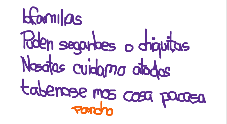 familias
Puden segarbes o chiquitas
Nosotas cuidamo atodas
tabenose mas casa pacasa
Pancho